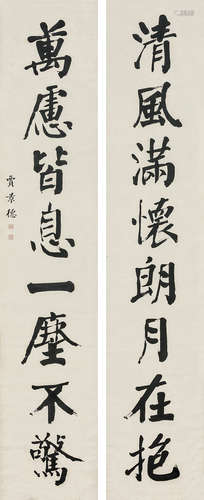 清風滿懷朗月在抱
萬慮皆息一塵不驚
賈景德